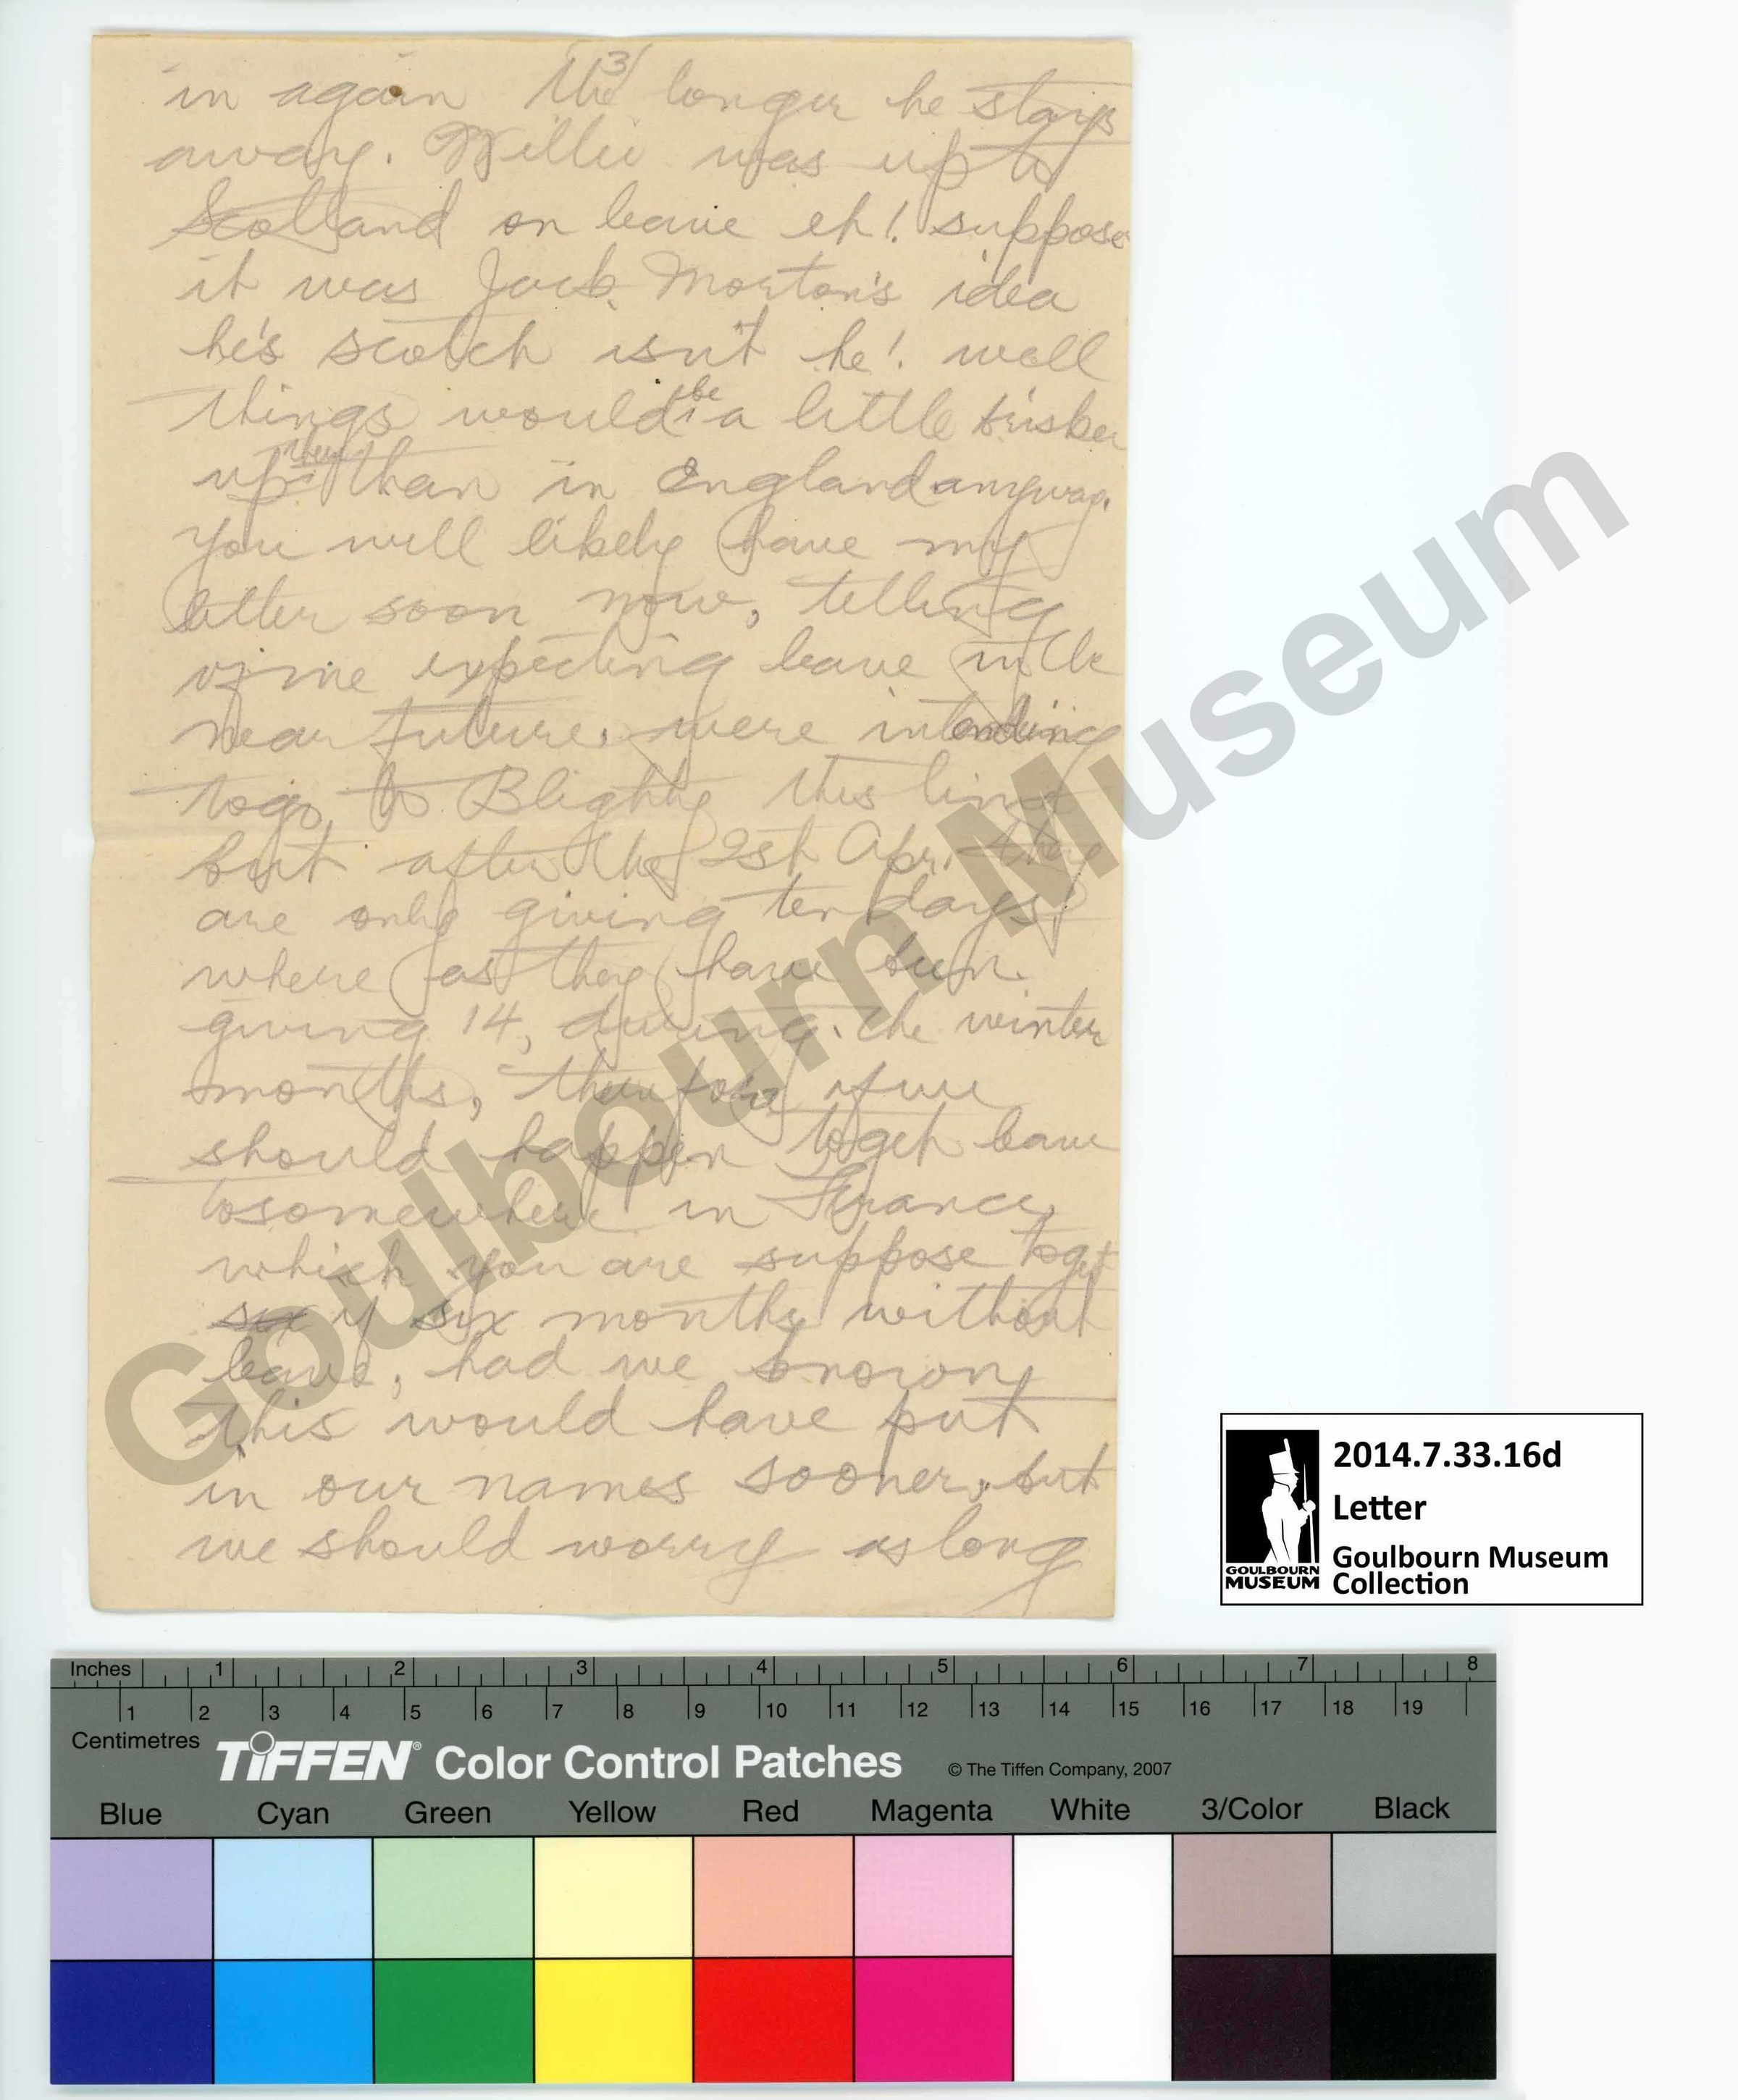 3/
in again The longer he stays
away. Willie was up to
Scotland on leave eh! suppose
it was Jack Morton's idea
he's scotch isn't he! well
things would be a little brisker
up there than in England anyway.
You will likely have my
letter soon now, telling
expecting leave in the
near future, were intending
to go to Blighty this time
but after the 1st Apr. they
are only giving ten days,
where as they have been
giving 14, during the winter
months, therefore if we
should happen to get leave
to somewhere in France,
which you are suppose to get
six if six months without
leave, had we known
this would have put
in our names sooner, but
we should worry as long
Goulbourn Museum
2014.7.33.16d
Letter
Goulbourn Museum
Collection
GOULBOURN
MUSEUM
Inches 1 2 3 4 5 6 7 8
1 2 3 4 5 6 7 8 9 10 11 12 13 14 15 16 17 18 19
Centimetres
TIFFEN® Color Control Patches © The Tiffen Company, 2007
Blue Cyan Green Yellow Red Magenta White 3/Color Black